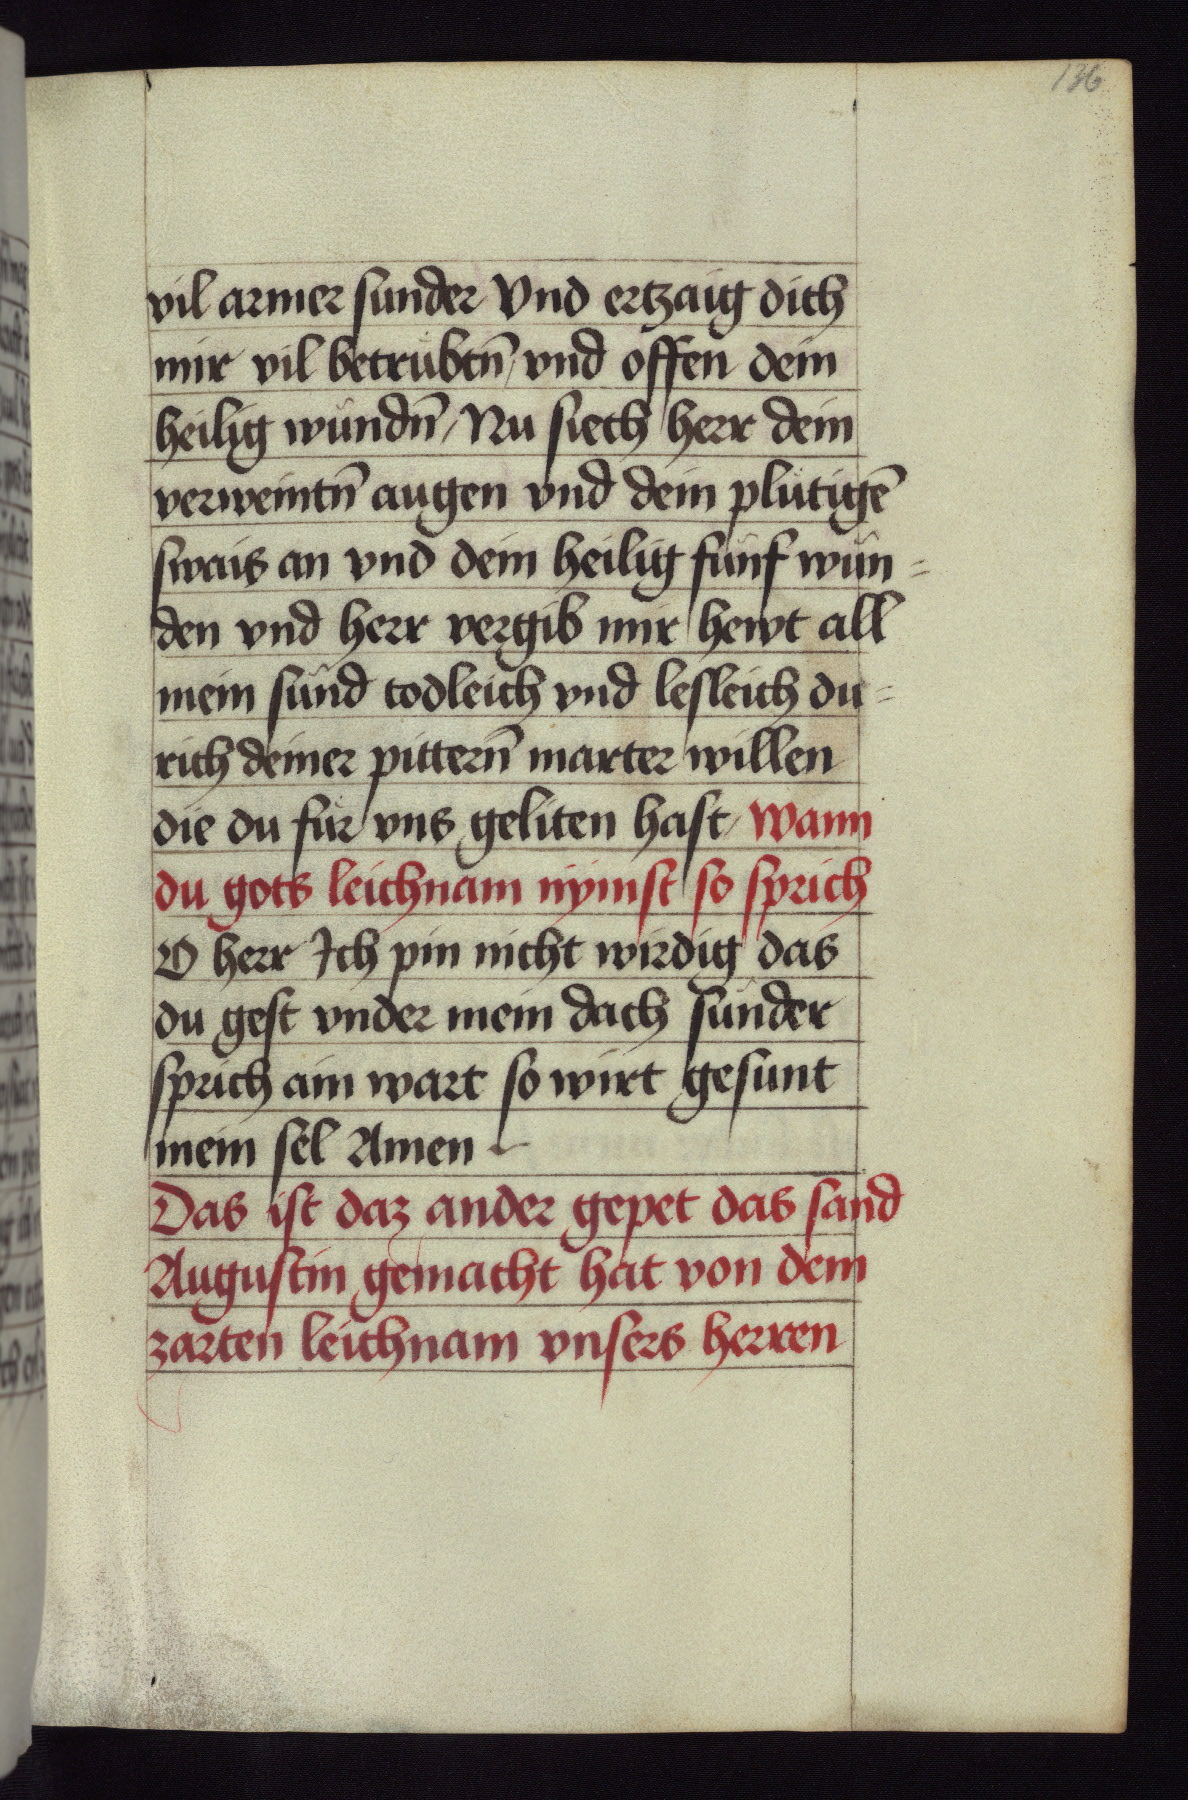 136
vil armer sunder Vnd ertzaig dich
mir vil betrübtn̄ / vnd offen dein
heilig wündn̄ / Nu siech herr dein
verweintn̄ augen vnd dein plütigē
swais an vnd dein heilig fünf wün=
den vnd herr vergib mir hewt all
mein sünd todleich vnd lesleich du=
rich deiner pittern̄ marter willen
die du für vns geliten hast / Wann
du gots leichnam nÿmst so sprich
O herr Ich pin nicht wirdig das
du gest vnder mein dach sünder
sprich ain wart so wirt gesunt
mein sel Amen
Das ist daz ander gepet das sand
Augustin gemacht hat von dem
zarten leichnam vnsers herren